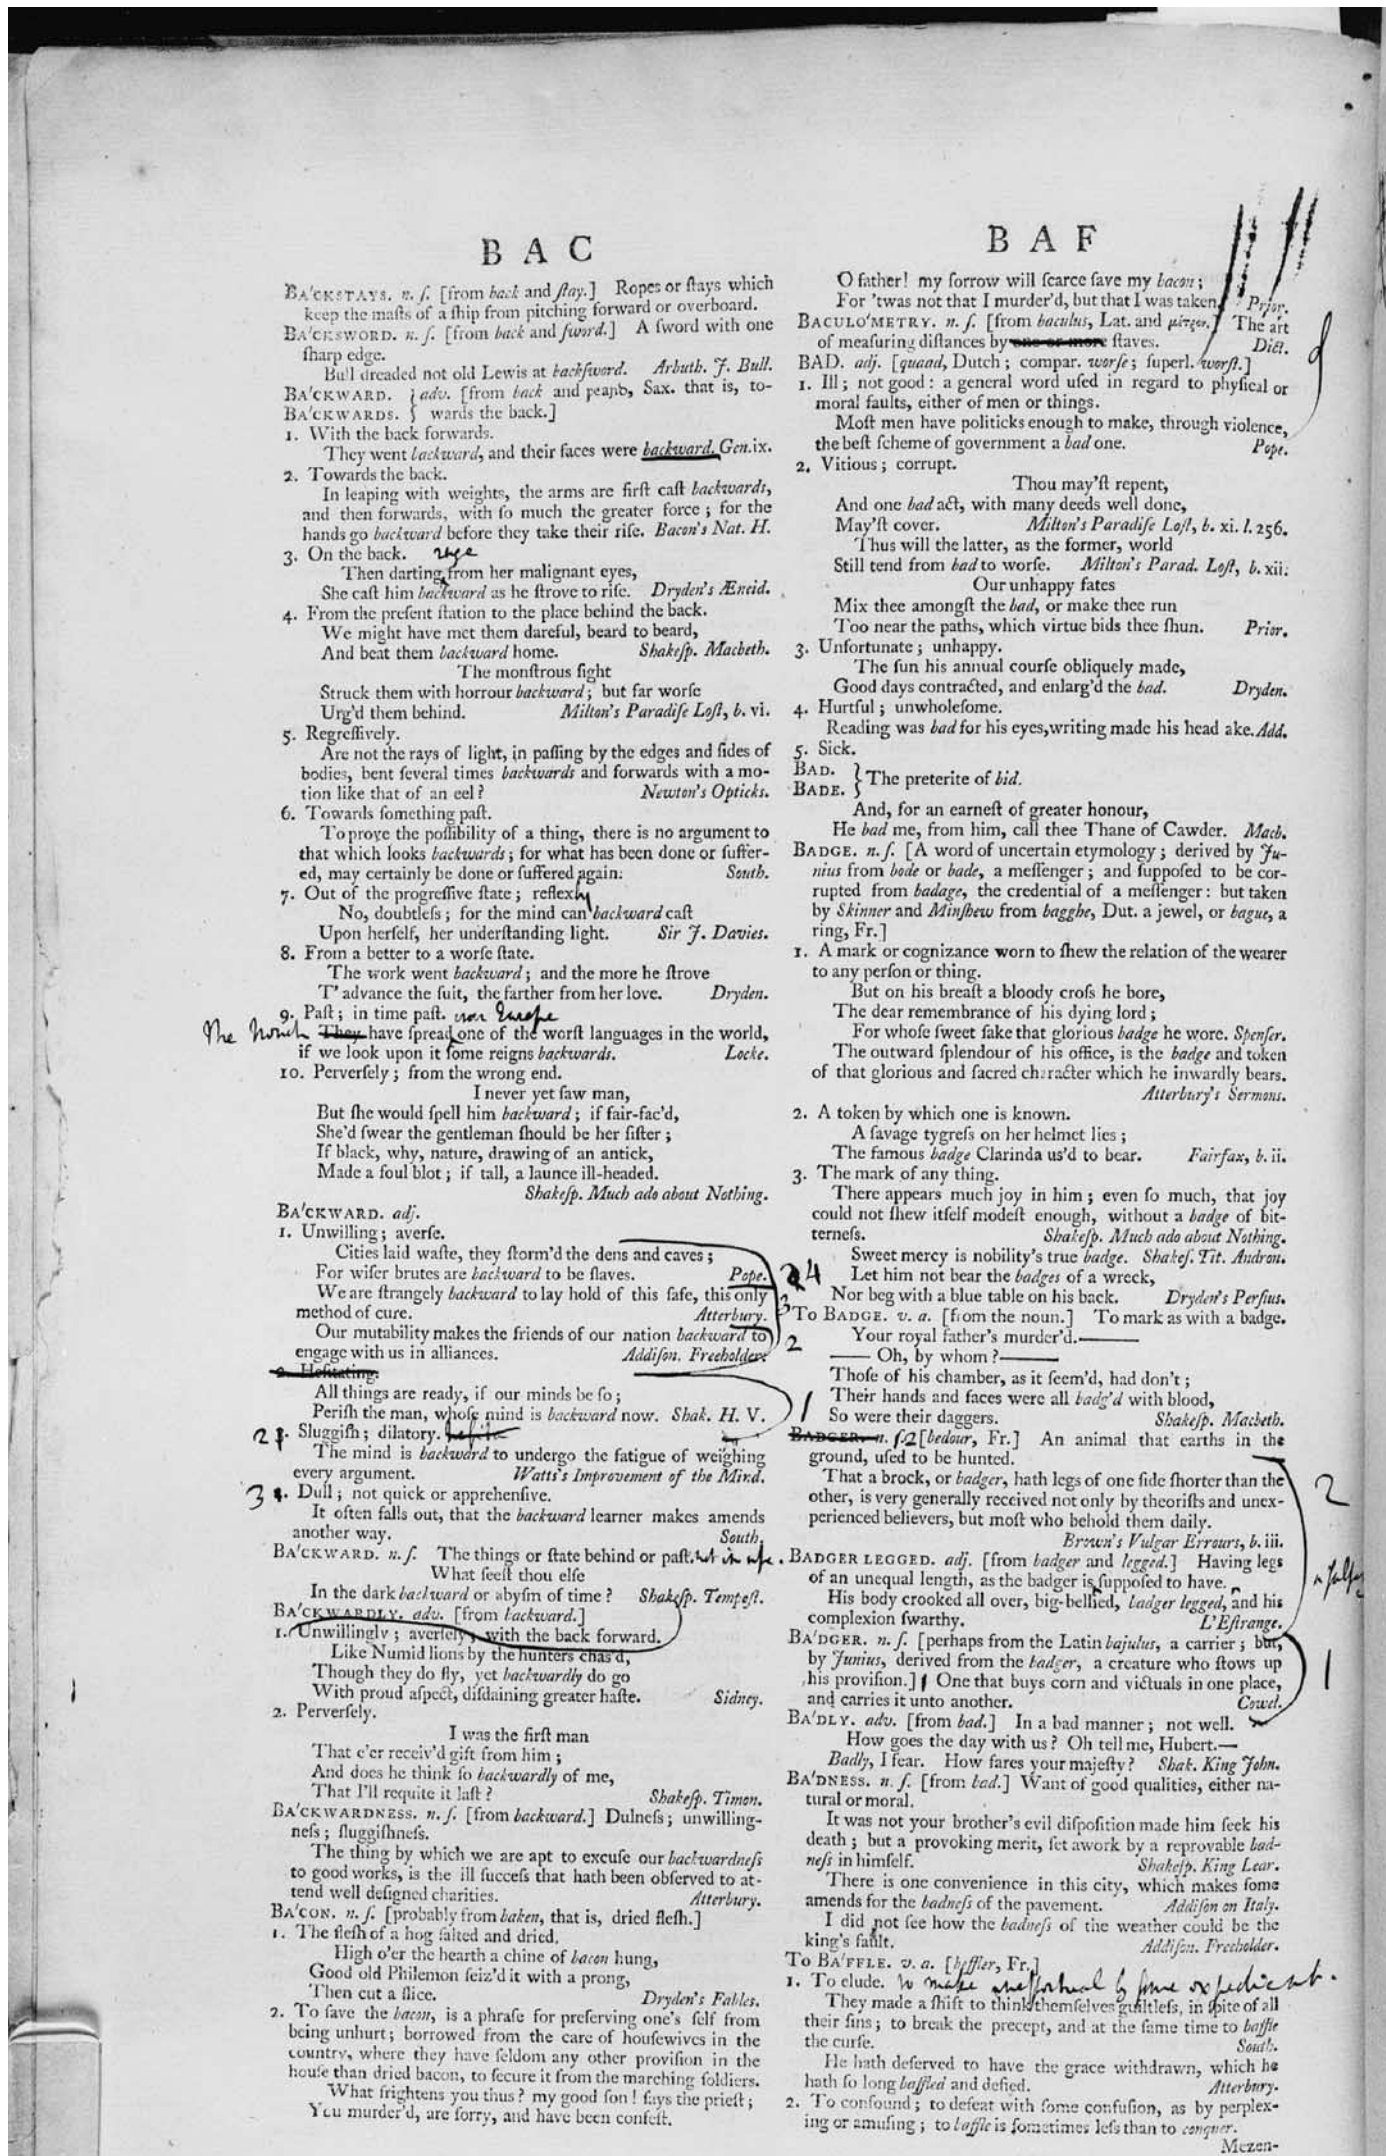 BAC
BA'CKSTAYS. n. ſ. [from back and ſtay.] Ropes or ſtays which
keep the maſts of a ſhip from pitching forward or overboard.
BA'CKSWORD. n. ſ. [from back and ſword.] A ſword with one
ſharp edge.
Bull dreaded not old Lewis at backſword. Arbuth. J. Bull.
BA'CKWARD. } adv. [from back and peaꞃꝺ, Sax. that is, to-
BA'CKWARDS. } wards the back.]
1. With the back forwards.
They went backward, and their faces were backward. Gen. ix.
2. Towards the back.
In leaping with weights, the arms are firſt caſt backwards,
and then forwards, with ſo much the greater force; for the
hands go backward before they take their riſe. Bacon's Nat. H.
3. On the back. rage
Then darting from her malignant eyes,
She caſt him backward as he ſtrove to riſe. Dryden's Æneid.
4. From the preſent ſtation to the place behind the back.
We might have met them dareful, beard to beard,
And beat them backward home. Shakeſp. Macbeth.
The monſtrous ſight
Struck them with horrour backward; but far worſe
Urg'd them behind. Milton's Paradiſe Loſt, b. vi.
5. Regreſſively.
Are not the rays of light, in paſſing by the edges and ſides of
bodies, bent ſeveral times backwards and forwards with a mo-
tion like that of an eel? Newton's Opticks.
6. Towards ſomething paſt.
To prove the poſſibility of a thing, there is no argument to
that which looks backwards; for what has been done or ſuffer-
ed, may certainly be done or ſuffered again. South.
7. Out of the progreſſive ſtate; reflexly
No, doubtleſs; for the mind can backward caſt
Upon herſelf, her underſtanding light. Sir J. Davies.
8. From a better to a worſe ſtate.
The work went backward; and the more he ſtrove
T' advance the ſuit, the farther from her love. Dryden.
9. Paſt; in time paſt. over Europe
The They have ſpread one of the worſt languages in the world,
if we look upon it ſome reigns backwards. Locke.
10. Perverſely; from the wrong end.
I never yet ſaw man,
But ſhe would ſpell him backward; if fair-fac'd,
She'd ſwear the gentleman ſhould be her ſiſter;
If black, why, nature, drawing of an antick,
Made a foul blot; if tall, a launce ill-headed.
Shakeſp. Much ado about Nothing.
BA'CKWARD. adj.
1. Unwilling; averſe.
Cities laid waſte, they ſtorm'd the dens and caves;
For wiſer brutes are backward to be ſlaves. Pope. 4
We are ſtrangely backward to lay hold of this ſafe, this only 3
method of cure. Atterbury.
Our mutability makes the friends of our nation backward to 2
engage with us in alliances. Addiſon. Freeholder.
2. Heſitating.
All things are ready, if our minds be ſo;
Periſh the man, whoſe mind is backward now. Shak. H. V. 1
2 3. Sluggiſh; dilatory.
The mind is backward to undergo the fatigue of weighing
every argument. Watts's Improvement of the Mind.
3 4. Dull; not quick or apprehenſive.
It often falls out, that the backward learner makes amends
another way. South.
BA'CKWARD. n. ſ. The things or ſtate behind or paſt. not in uſe.
What ſeeſt thou elſe
In the dark backward or abyſm of time? Shakeſp. Tempeſt.
BA'CKWARDLY. adv. [from backward.]
1. Unwillingly; averſely; with the back forward.
Like Numid lions by the hunters chas'd,
Though they do fly, yet backwardly do go
With proud aſpect, diſdaining greater haſte. Sidney.
2. Perverſely.
I was the firſt man
That e'er receiv'd gift from him;
And does he think ſo backwardly of me,
That I'll requite it laſt? Shakeſp. Timon.
BA'CKWARDNESS. n. ſ. [from backward.] Dulneſs; unwilling-
neſs; ſluggiſhneſs.
The thing by which we are apt to excuſe our backwardneſs
to good works, is the ill ſucceſs that hath been obſerved to at-
tend well deſigned charities. Atterbury.
BA'CON. n. ſ. [probably from baken, that is, dried fleſh.]
1. The fleſh of a hog ſalted and dried.
High o'er the hearth a chine of bacon hung,
Good old Philemon ſeiz'd it with a prong,
Then cut a ſlice. Dryden's Fables.
2. To ſave the bacon, is a phraſe for preſerving one's ſelf from
being unhurt; borrowed from the care of houſewives in the
country, where they have ſeldom any other proviſion in the
houſe than dried bacon, to ſecure it from the marching ſoldiers.
What frightens you thus? my good ſon! ſays the prieſt;
You murder'd, are ſorry, and have been confeſt.
BAF
O father! my ſorrow will ſcarce ſave my bacon;
For 'twas not that I murder'd, but that I was taken. Prior.
BACULO'METRY. n. ſ. [from baculus, Lat. and μέτρον.] The art
of meaſuring diſtances by one or more ſtaves. Dict.
BAD. adj. [quaad, Dutch; compar. worſe; ſuperl. worſt.]
1. Ill; not good: a general word uſed in regard to phyſical or
moral faults, either of men or things.
Moſt men have politicks enough to make, through violence,
the beſt ſcheme of government a bad one. Pope.
2. Vitious; corrupt.
Thou may'ſt repent,
And one bad act, with many deeds well done,
May'ſt cover. Milton's Paradiſe Loſt, b. xi. l. 256.
Thus will the latter, as the former, world
Still tend from bad to worſe. Milton's Parad. Loſt, b. xii.
Our unhappy fates
Mix thee amongſt the bad, or make thee run
Too near the paths, which virtue bids thee ſhun. Prior.
3. Unfortunate; unhappy.
The ſun his annual courſe obliquely made,
Good days contracted, and enlarg'd the bad. Dryden.
4. Hurtful; unwholeſome.
Reading was bad for his eyes, writing made his head ake. Add.
5. Sick.
BAD. } The preterite of bid.
BADE. }
And, for an earneſt of greater honour,
He bad me, from him, call thee Thane of Cawder. Macb.
BADGE. n. ſ. [A word of uncertain etymology; derived by Ju-
nius from bode or bade, a meſſenger; and ſuppoſed to be cor-
rupted from badage, the credential of a meſſenger: but taken
by Skinner and Minſhew from bagghe, Dut. a jewel, or bague, a
ring, Fr.]
1. A mark or cognizance worn to ſhew the relation of the wearer
to any perſon or thing.
But on his breaſt a bloody croſs he bore,
The dear remembrance of his dying lord;
For whoſe ſweet ſake that glorious badge he wore. Spenſer.
The outward ſplendour of his office, is the badge and token
of that glorious and ſacred character which he inwardly bears.
Atterbury's Sermons.
2. A token by which one is known.
A ſavage tygreſs on her helmet lies;
The famous badge Clarinda us'd to bear. Fairfax, b. ii.
3. The mark of any thing.
There appears much joy in him; even ſo much, that joy
could not ſhew itſelf modeſt enough, without a badge of bit-
terneſs. Shakeſp. Much ado about Nothing.
Sweet mercy is nobility's true badge. Shakeſ. Tit. Andron.
Let him not bear the badges of a wreck,
Nor beg with a blue table on his back. Dryden's Perſius.
To BADGE. v. a. [from the noun.] To mark as with a badge.
Your royal father's murder'd.——
—— Oh, by whom?——
Thoſe of his chamber, as it ſeem'd, had don't;
Their hands and faces were all badg'd with blood,
So were their daggers. Shakeſp. Macbeth.
BADGER. n. ſ. 2 [bedour, Fr.] An animal that earths in the
ground, uſed to be hunted.
That a brock, or badger, hath legs of one ſide ſhorter than the 2
other, is very generally received not only by theoriſts and unex-
perienced believers, but moſt who behold them daily.
Brown's Vulgar Errours, b. iii.
BADGER LEGGED. adj. [from badger and legged.] Having legs
of an unequal length, as the badger is ſuppoſed to have.
His body crooked all over, big-bellied, badger legged, and his
complexion ſwarthy. L'Eſtrange.
BA'DGER. n. ſ. [perhaps from the Latin bajulus, a carrier; but,
by Junius, derived from the badger, a creature who ſtows up 1
his proviſion.] 1 One that buys corn and victuals in one place,
and carries it unto another. Cowel.
BA'DLY. adv. [from bad.] In a bad manner; not well.
How goes the day with us? Oh tell me, Hubert.—
Badly, I fear. How fares your majeſty? Shak. King John.
BA'DNESS. n. ſ. [from bad.] Want of good qualities, either na-
tural or moral.
It was not your brother's evil diſpoſition made him ſeek his
death; but a provoking merit, ſet awork by a reprovable bad-
neſs in himſelf. Shakeſp. King Lear.
There is one convenience in this city, which makes ſome
amends for the badneſs of the pavement. Addiſon on Italy.
I did not ſee how the badneſs of the weather could be the
king's fault. Addiſon. Freeholder.
To BA'FFLE. v. a. [beffler, Fr.]
1. To elude. to make ineffectual by ſome expedient.
They made a ſhift to think themſelves guiltleſs, in ſpite of all
their ſins; to break the precept, and at the ſame time to baffle
the curſe. South.
He hath deſerved to have the grace withdrawn, which he
hath ſo long baffled and defied. Atterbury.
2. To confound; to defeat with ſome confuſion, as by perplex-
ing or amuſing; to baffle is ſometimes leſs than to conquer.
Mezen-